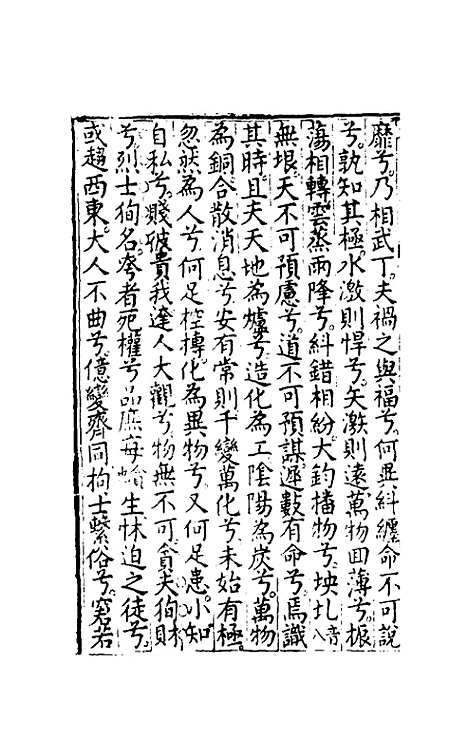 靡兮。乃相武丁。夫禍之與福兮。何異糾纆命不可說
兮。孰知其極。水激則悍兮。矢激則遠。萬物囬薄兮。振
蕩相轉雲蒸雨降兮。糾錯相紛。大鈞播物兮。坱圠音八
無垠。天不可預慮兮。道不可預謀。遲數有命兮。焉識
其時。且夫天地為爐兮。造化為工陰陽為炭兮。萬物
為銅合散消息兮。安有常則千變萬化兮。未始有極。
忽然為人兮。何足控摶。化為異物兮。又何足患。小知
自私兮。賤彼貴我達人大觀兮。物無不可。貪夫狥財
兮。烈士狥名。夸者死權兮品庶每生怵迫之徒兮。
或趨西東。大人不曲兮。億變齊同拘士繫俗兮。窘若